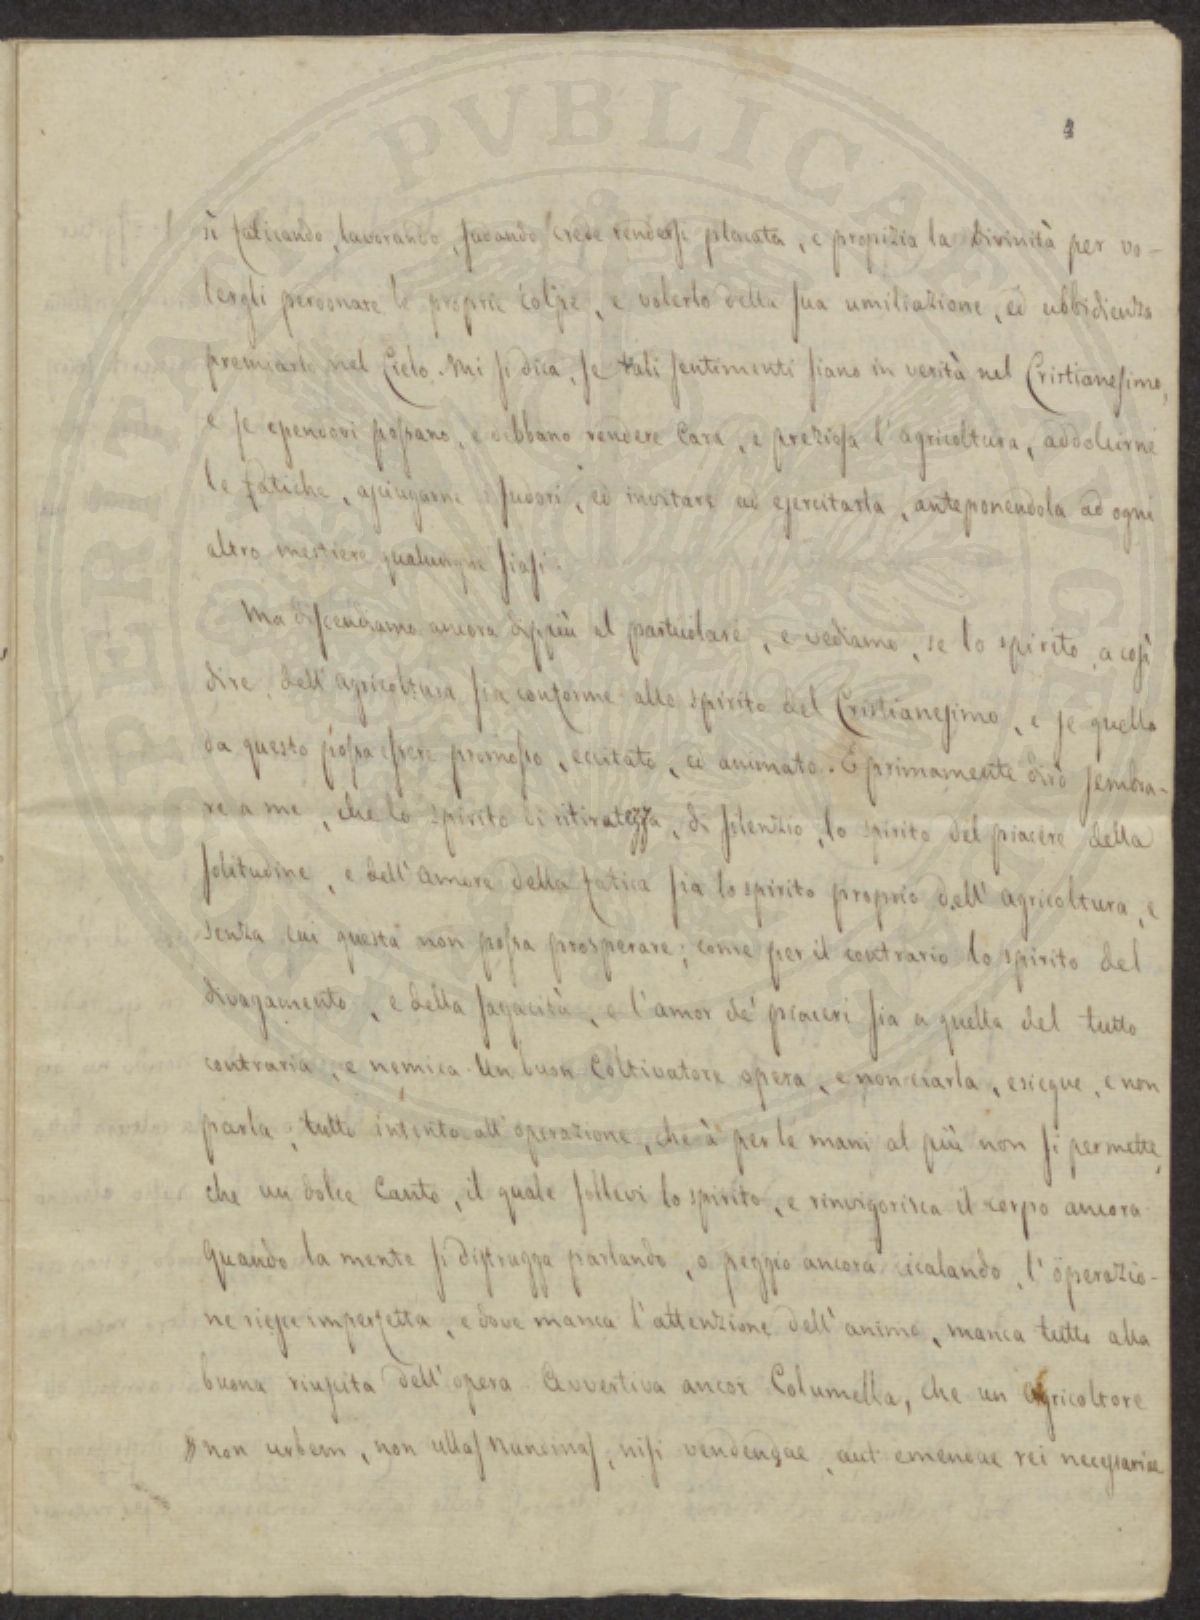 4
sì faticando, lavorando, sudando crede rendersi placata, e propizia la Divinità per vo-
lergli perdonare le proprie colpe, e volerlo della sua umiliazione, ed ubbidienza
premiarlo nel Cielo. Mi si dica, se tali sentimenti siano in verità nel Cristianesimo,
e se essendovi possano, e debbano rendere cara, e preziosa l'agricoltura, addolcirne
le fatiche, asciugarne i sudori, ed invitare ad esercitarla, anteponendola ad ogni
altro mestiere qualunque siasi.
Ma discendiamo ancora dippiù al particolare, e vediamo, se lo spirito, a così
dire, dell'agricoltura sia conforme allo spirito del Cristianesimo, e se quello
da questo possa essere promosso, eccitato, ed animato. E primamente dirò sembra-
re a me, che lo spirito di ritiratezza, di silenzio, lo spirito del piacere della
solitudine, e dell'amore della fatica sia lo spirito proprio dell'agricoltura, e
senza cui questa non possa prosperare; come per il contrario lo spirito del
divagamento, e della sagacità, e l'amor de' piaceri sia a quella del tutto
contraria, e nemica. Un buon Coltivatore opera, e non ciarla, esiegue, e non
parla, tutto intento all'operazione, che à per le mani al più non si permette,
che un dolce Canto, il quale sollevi lo spirito, e rinvigorisca il corpo ancora.
Quando la mente si distragga parlando, o peggio ancora cicalando, l'operazio-
ne riesce imperfetta, e dove manca l'attenzione dell'animo, manca tutto alla
buona riuscita dell'opera. Avvertiva ancor Columella, che un agricoltore
» non urbem, non ullas nundinas, nisi vendendae, aut emendae rei necessariae
PVBLICA